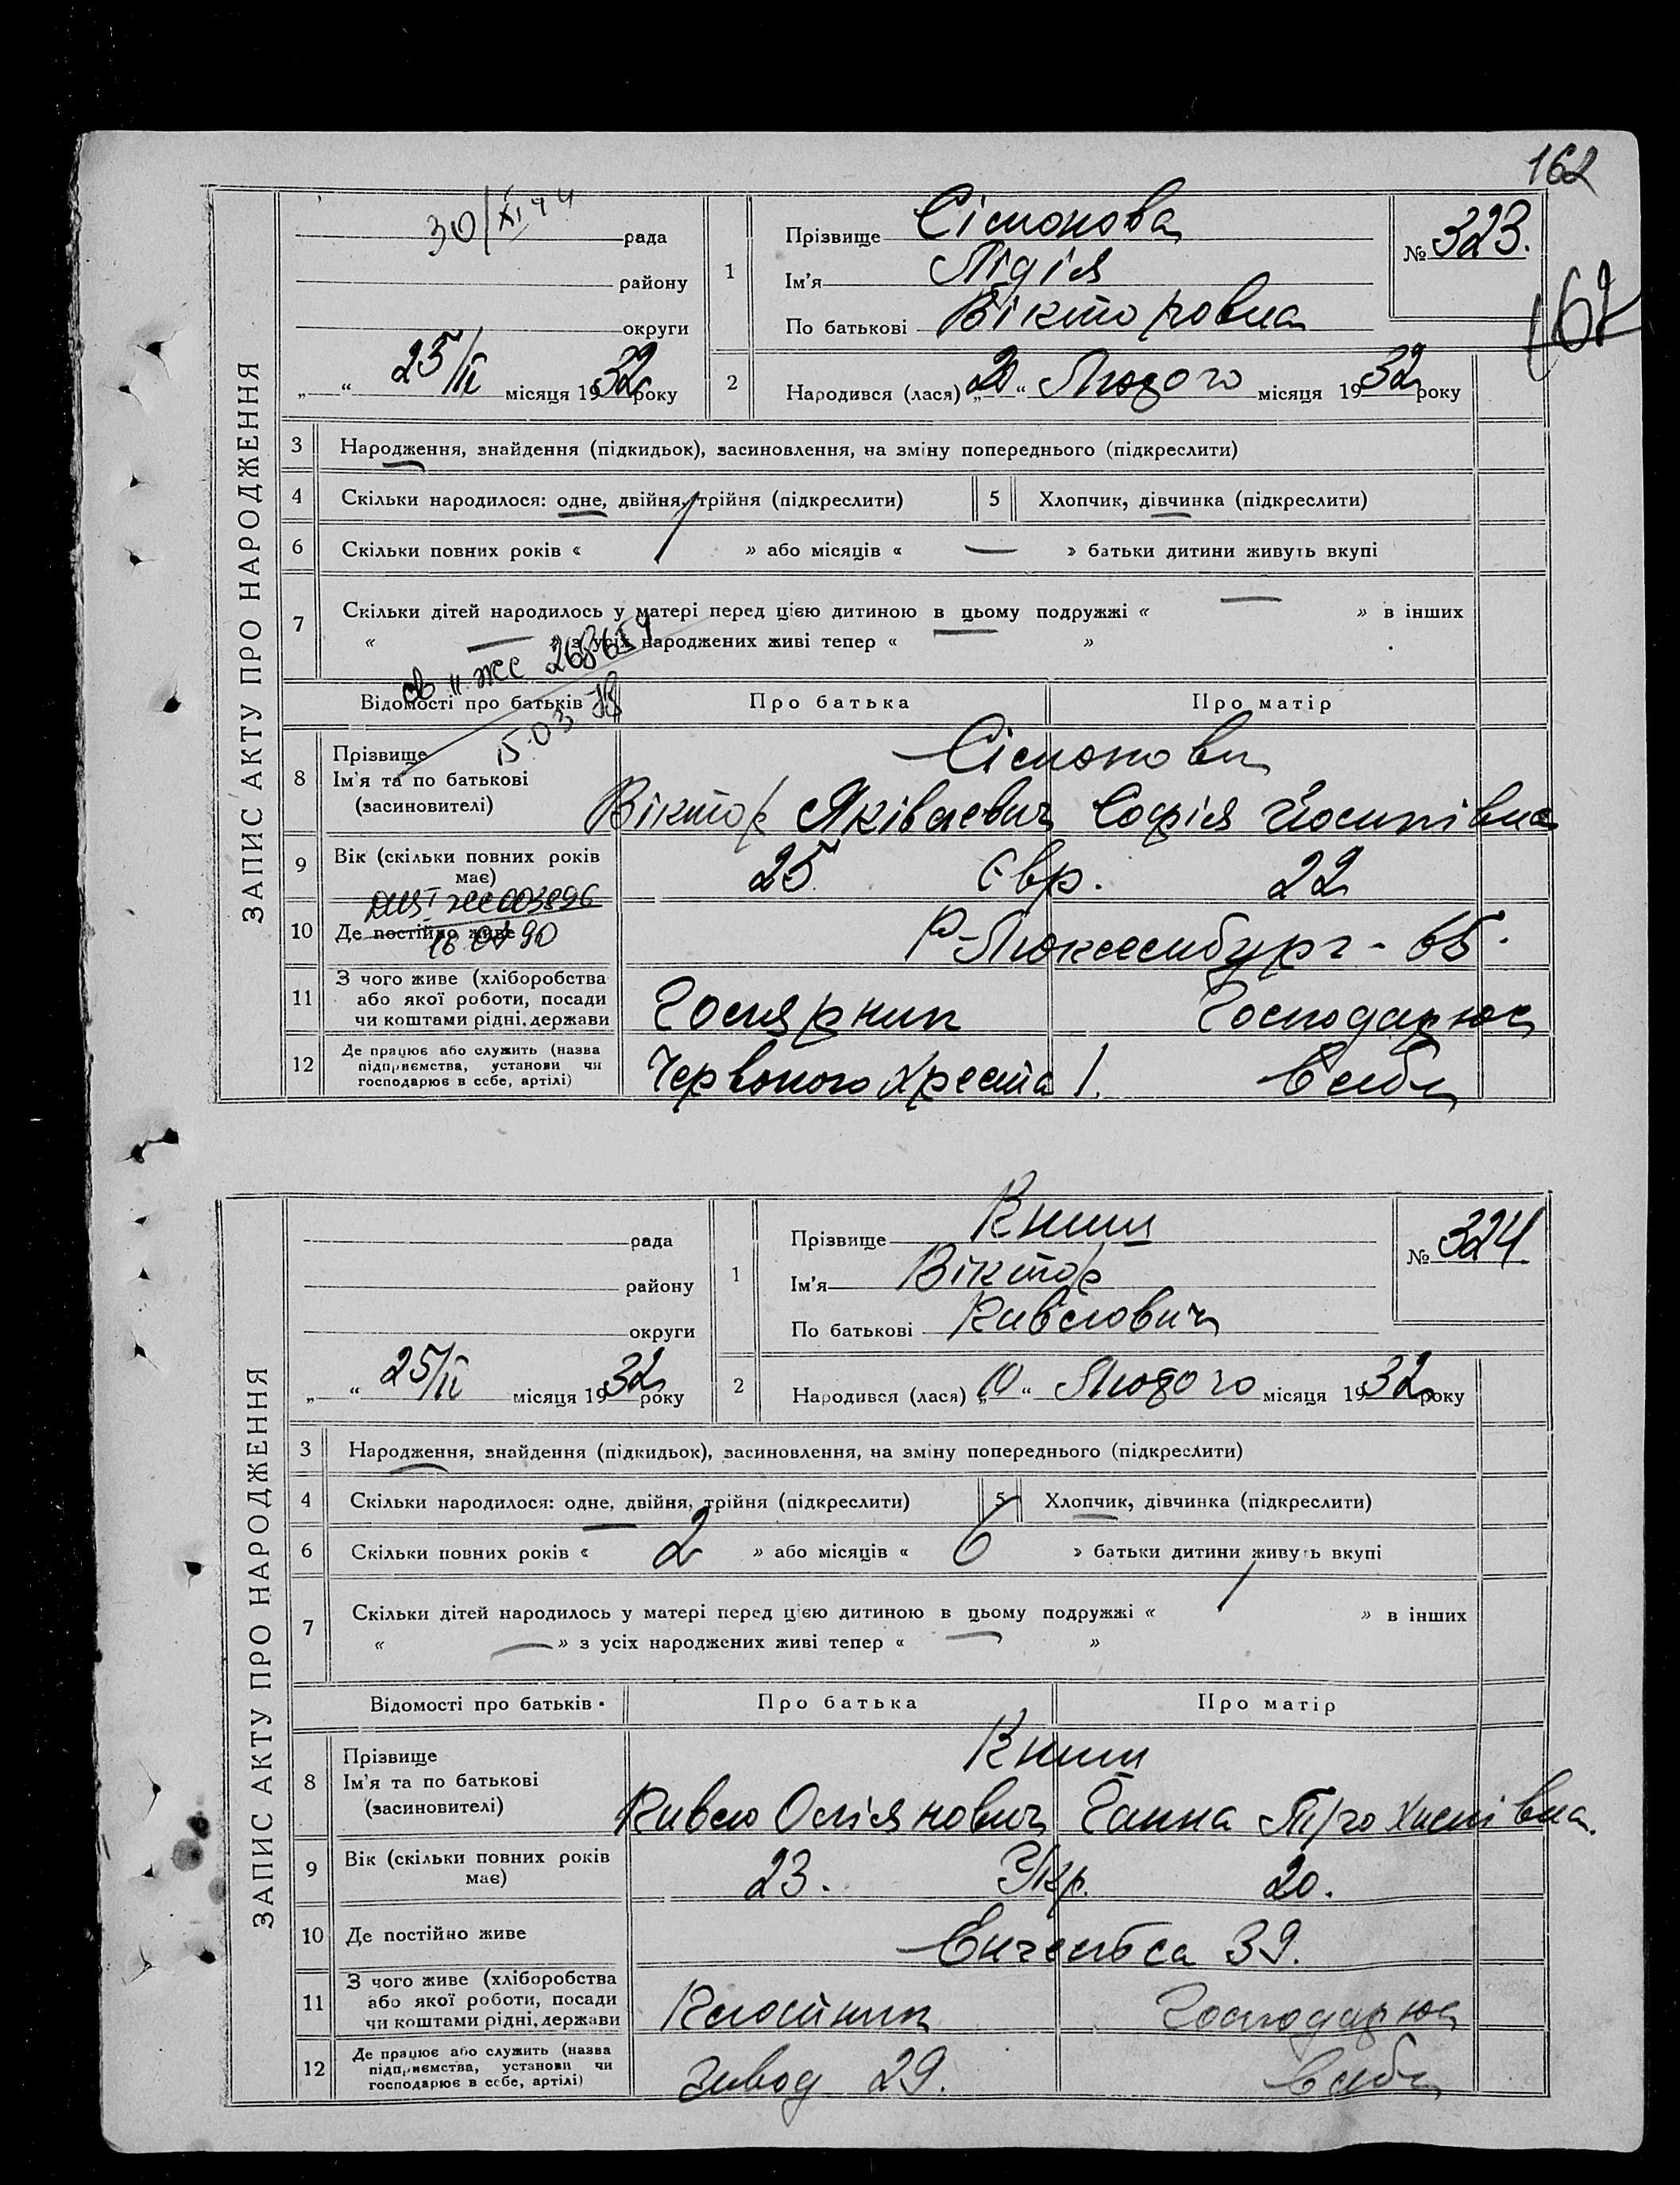 162
ЗАПИС АКТУ ПРО НАРОДЖЕННЯ
30/XI 44 рада
району
округи
„ “ 25/II місяця 1932 року
1
Прізвище Сімонова
Ім'я Лідія
По батькові Вікторовна
№ 323.
162
2
Народився (лася) „20“ Лютого місяця 1932 року
3 Народження, знайдення (підкидьок), засиновлення, на зміну попереднього (підкреслити)
4 Скільки народилося: одне, двійня, трійня (підкреслити) 5 Хлопчик, дівчинка (підкреслити)
6 Скільки повних років « 1 » або місяців « — » батьки дитини живуть вкупі
7 Скільки дітей народилось у матері перед цією дитиною в цьому подружжі « — » в інших
« — » з усіх народжених живі тепер « — »
св II жс
15.03
Відомості про батьків Про батька Про матір
8 Прізвище
Ім'я та по батькові
(засиновителі)
Сімонови
Віктор Яківлевич Софія Йосипівна
9 Вік (скільки повних років
має)
25 Євр. 22
10 Де постійно живе
Р-Люксембург - 65.
11 З чого живе (хліборобства
або якої роботи, посади
чи коштами рідні, держави
Господарює
12 Де працює або служить (назва
підприємства, установи чи
господарює в себе, артілі)
Червоного Хреста 1. В себе
ЗАПИС АКТУ ПРО НАРОДЖЕННЯ
рада
району
округи
„ “ 25/II місяця 1932 року
1
Прізвище Книш
Ім'я Віктор
По батькові
№ 324
2
Народився (лася) „10“ Лютого місяця 1932 року
3 Народження, знайдення (підкидьок), засиновлення, на зміну попереднього (підкреслити)
4 Скільки народилося: одне, двійня, трійня (підкреслити) 5 Хлопчик, дівчинка (підкреслити)
6 Скільки повних років « 2 » або місяців « 6 » батьки дитини живуть вкупі
7 Скільки дітей народилось у матері перед цією дитиною в цьому подружжі « / » в інших
« — » з усіх народжених живі тепер « — »
Відомості про батьків Про батька Про матір
8 Прізвище
Ім'я та по батькові
(засиновителі)
Книш
Ганна
9 Вік (скільки повних років
має)
23. Укр. 20.
10 Де постійно живе
Енгельса 39.
11 З чого живе (хліборобства
або якої роботи, посади
чи коштами рідні, держави
Господарює
12 Де працює або служить (назва
підприємства, установи чи
господарює в себе, артілі)
Завод 29. В себе